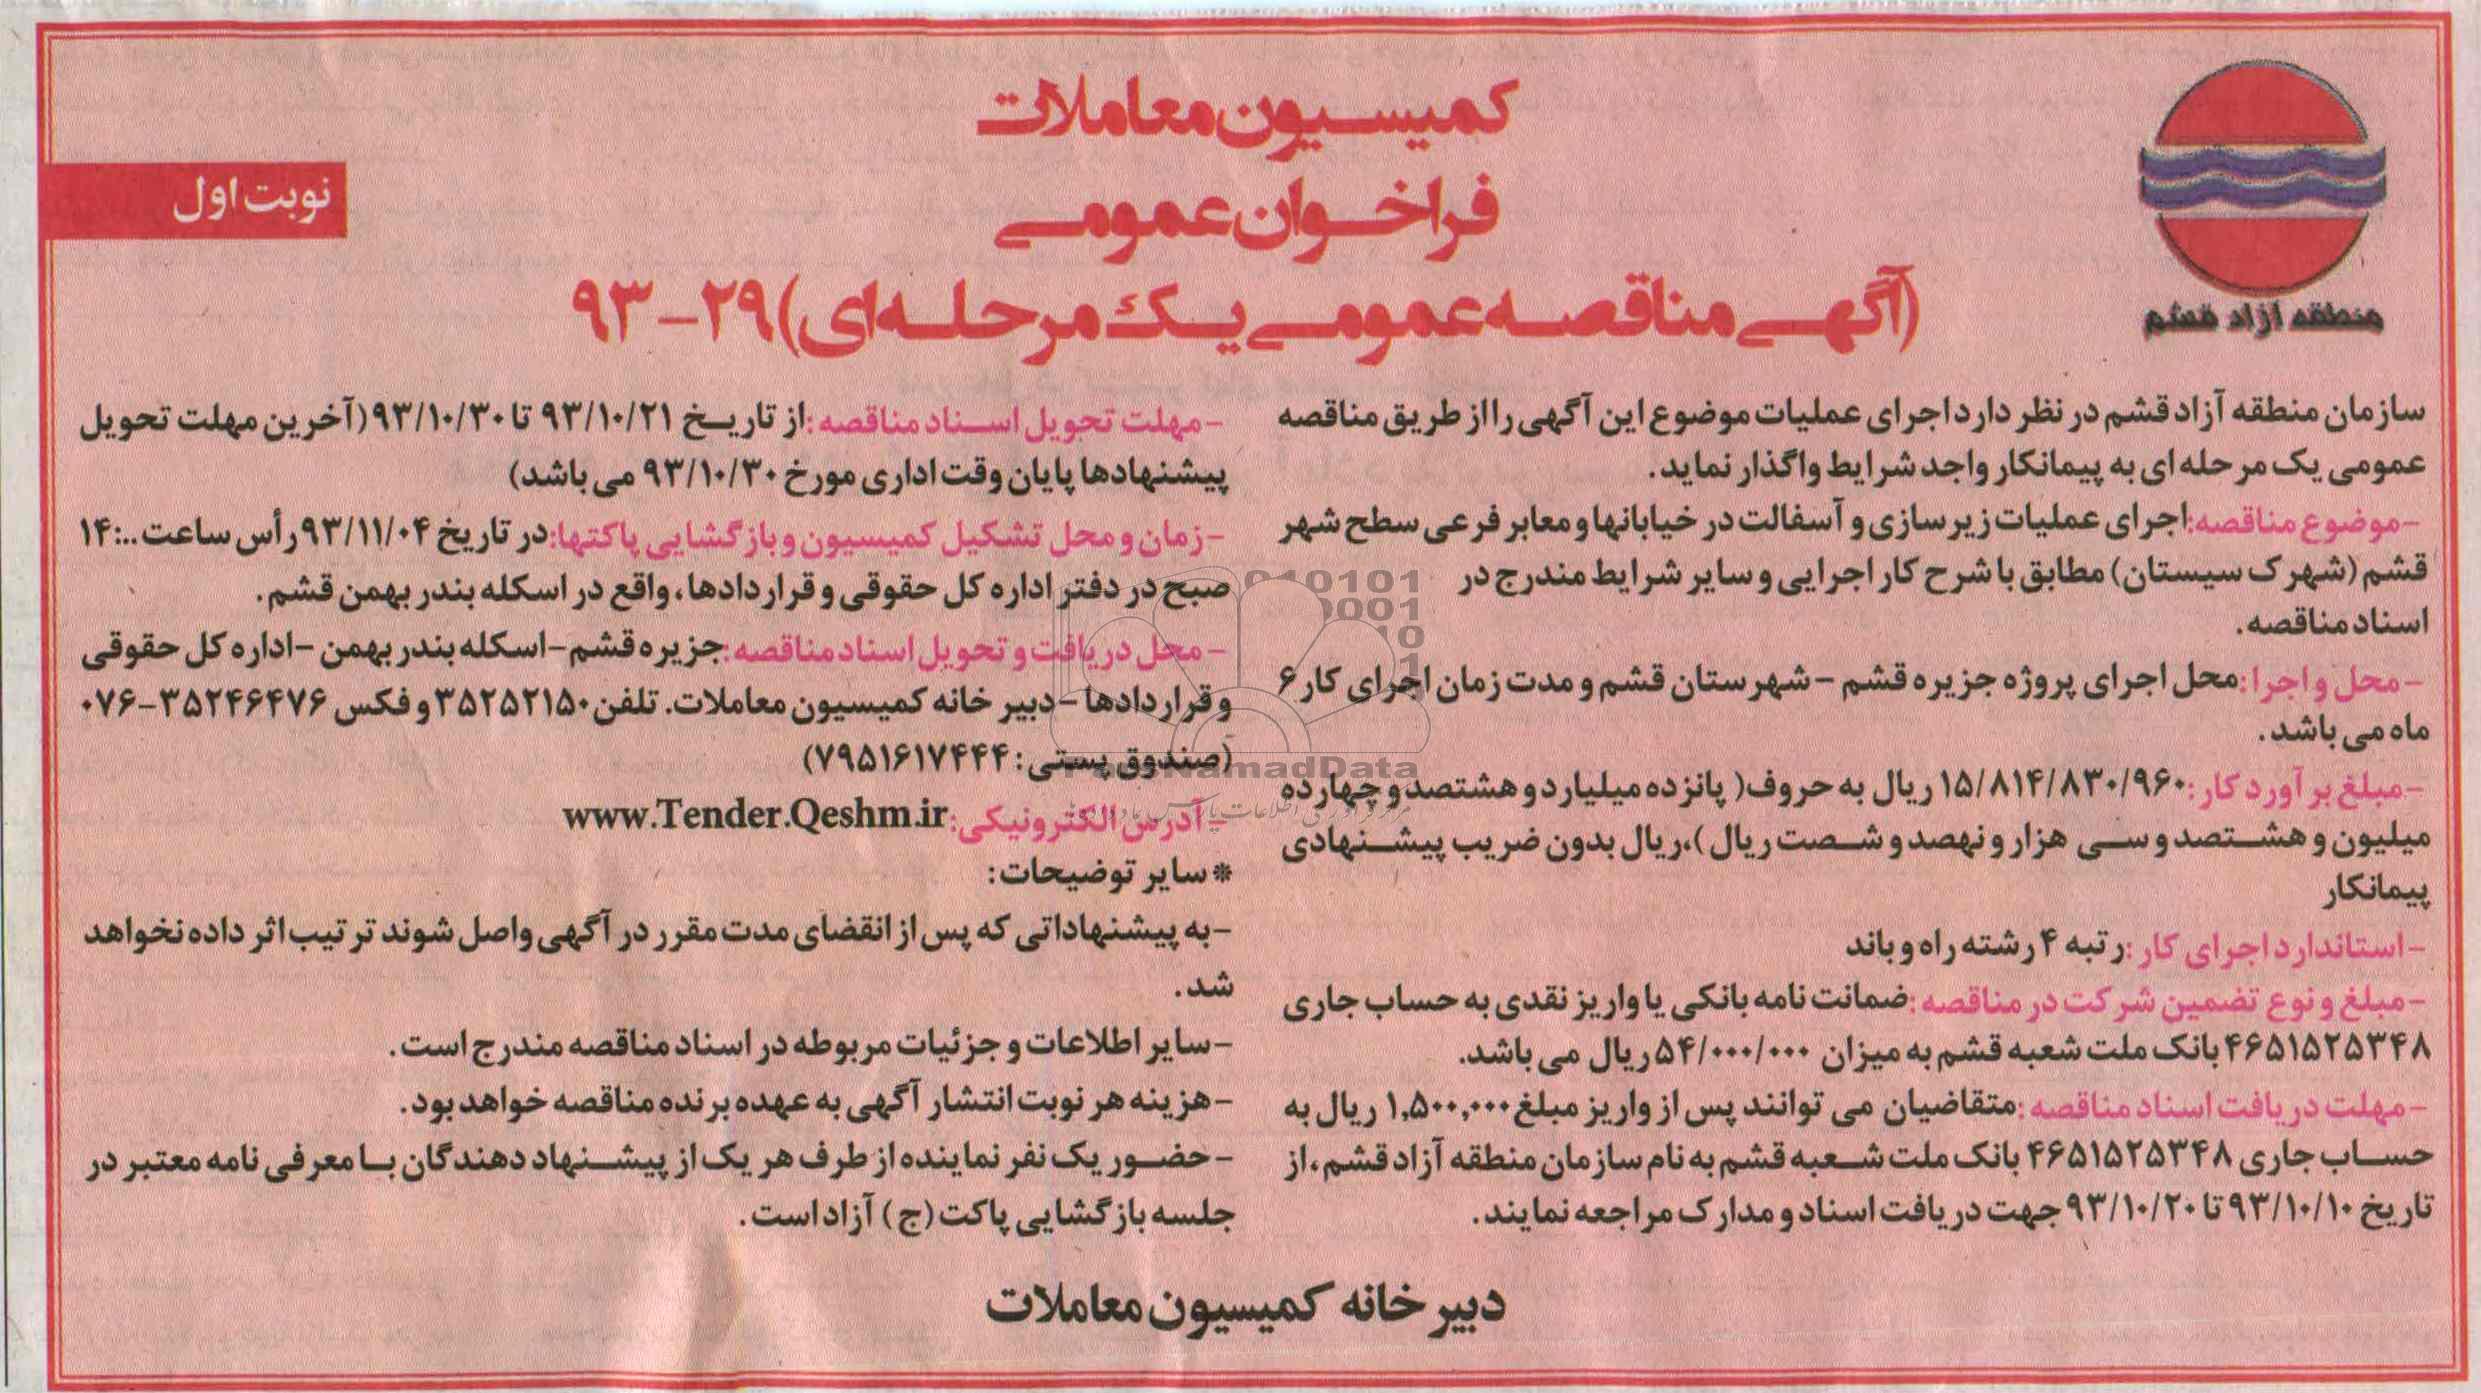 کمیسیون معاملات
فراخوان عمومی
(آگهی مناقصه عمومی یک مرحله ای) ۲۹-۹۳
نوبت اول
منطقه آزاد قشم
سازمان منطقه آزاد قشم در نظر دارد اجرای عملیات موضوع این آگهی را از طریق مناقصه
عمومی یک مرحله ای به پیمانکار واجد شرایط واگذار نماید.
-موضوع مناقصه: اجرای عملیات زیرسازی و آسفالت در خیابانها و معابر فرعی سطح شهر
قشم (شهرک سیستان) مطابق با شرح کار اجرایی و سایر شرایط مندرج در
اسناد مناقصه.
-محل و اجرا: محل اجرای پروژه جزیره قشم -شهرستان قشم و مدت زمان اجرای کار ۶
ماه می باشد.
-مبلغ برآورد کار: ۱۵/۸۱۴/۸۳۰/۹۶۰ ریال به حروف( پانزده میلیارد و هشتصد و چهارده
میلیون و هشتصد و سی هزار و نهصد و شصت ریال)، ریال بدون ضریب پیشنهادی
پیمانکار
-استاندارد اجرای کار: رتبه ۴ رشته راه و باند
-مبلغ و نوع تضمین شرکت در مناقصه: ضمانت نامه بانکی یا واریز نقدی به حساب جاری
۴۶۵۱۵۲۵۳۴۸ بانک ملت شعبه قشم به میزان ۵۴/۰۰۰/۰۰۰ ریال می باشد.
-مهلت دریافت اسناد مناقصه: متقاضیان می توانند پس از واریز مبلغ ۱,۵۰۰,۰۰۰ ریال به
حساب جاری ۴۶۵۱۵۲۵۳۴۸ بانک ملت شعبه قشم به نام سازمان منطقه آزاد قشم، از
تاریخ ۹۳/۱۰/۱۰ تا ۹۳/۱۰/۲۰ جهت دریافت اسناد و مدارک مراجعه نمایند.
-مهلت تحویل اسناد مناقصه: از تاریخ ۹۳/۱۰/۲۱ تا ۹۳/۱۰/۳۰ (آخرین مهلت تحویل
پیشنهادها پایان وقت اداری مورخ ۹۳/۱۰/۳۰ می باشد)
-زمان و محل تشکیل کمیسیون و بازگشایی پاکتها: در تاریخ ۹۳/۱۱/۰۴ رأس ساعت ۱۴:۰۰
صبح در دفتر اداره کل حقوقی و قراردادها، واقع در اسکله بندر بهمن قشم.
-محل دریافت و تحویل اسناد مناقصه: جزیره قشم-اسکله بندر بهمن -اداره کل حقوقی
و قراردادها -دبیر خانه کمیسیون معاملات. تلفن ۳۵۲۵۲۱۵۰ و فکس ۳۵۲۴۶۴۷۶-۰۷۶
(صندوق پستی: ۷۹۵۱۶۱۷۴۴۴)
-آدرس الکترونیکی: www.Tender.Qeshm.ir
*سایر توضیحات:
-به پیشنهاداتی که پس از انقضای مدت مقرر در آگهی واصل شوند ترتیب اثر داده نخواهد
شد.
-سایر اطلاعات و جزئیات مربوطه در اسناد مناقصه مندرج است.
-هزینه هر نوبت انتشار آگهی به عهده برنده مناقصه خواهد بود.
-حضور یک نفر نماینده از طرف هر یک از پیشنهاد دهندگان با معرفی نامه معتبر در
جلسه بازگشایی پاکت (ج) آزاد است.
دبیر خانه کمیسیون معاملات